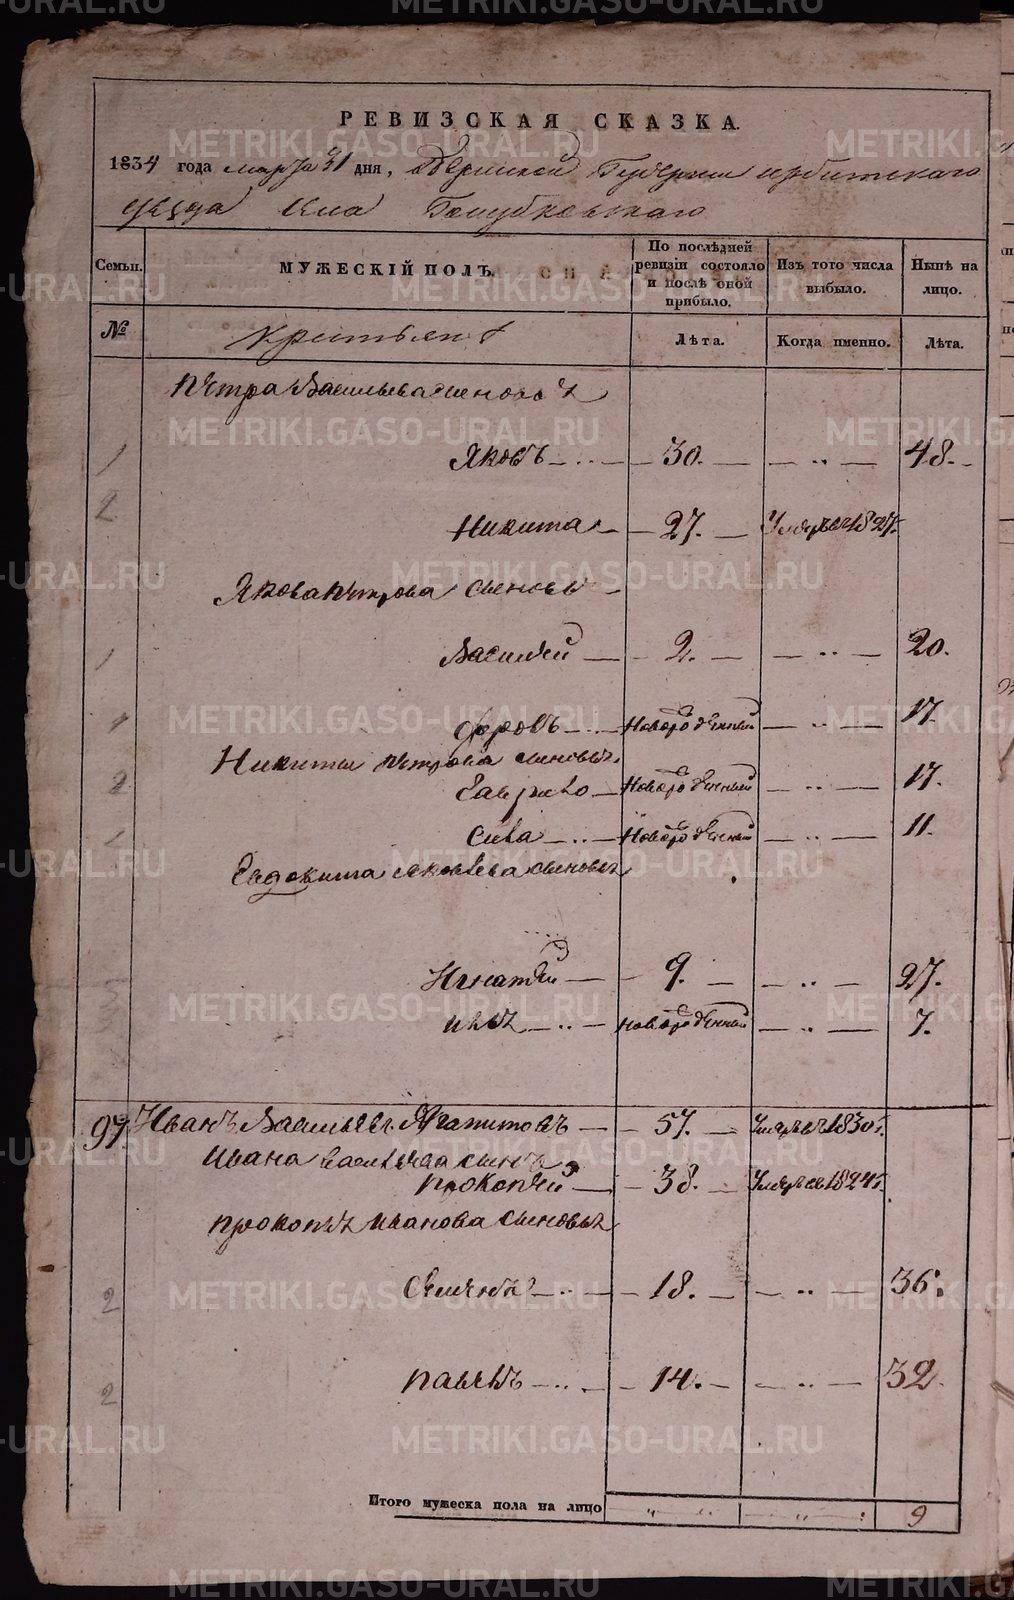 РЕВИЗСКАЯ СКАЗКА.
1834 года марта 31 дня, Пермской Губернии ирбитскаго
уезда села Голубковскаго
Семьи. МУЖЕСКІЙ ПОЛЪ. По послѣдней ревизіи состояло и послѣ оной прибыло. Изъ того числа выбыло. Нынѣ на лицо.
№ крестьянъ Лѣта. Когда именно. Лѣта.
Петра Васильева сыновья
1 Яковъ 30. 48.
2 Никита 27. Умеръ въ 1827г.
Якова Петрова сыновья
1 Василей 2. 20.
1 Фролъ Новорожденный 17
Никиты Петрова сыновья
2 Гаврило Новорожденный 17.
1 Сила Новорожденный 11.
Евдокима Яковлева сыновья
Игнатей 9. 27.
Новорожденный 7.
97. Иванъ Васильевъ Агапитовъ 57. Умеръ въ 1830г.
Ивана Васильева сынъ
Прокопей 38. Умеръ въ 1824г.
Прокопья Иванова сыновья
2 Семенъ 18. 36.
2 Павелъ 14. 32
Итого мужеска пола на лицо 9
METRIKI.GASO-URAL.RU